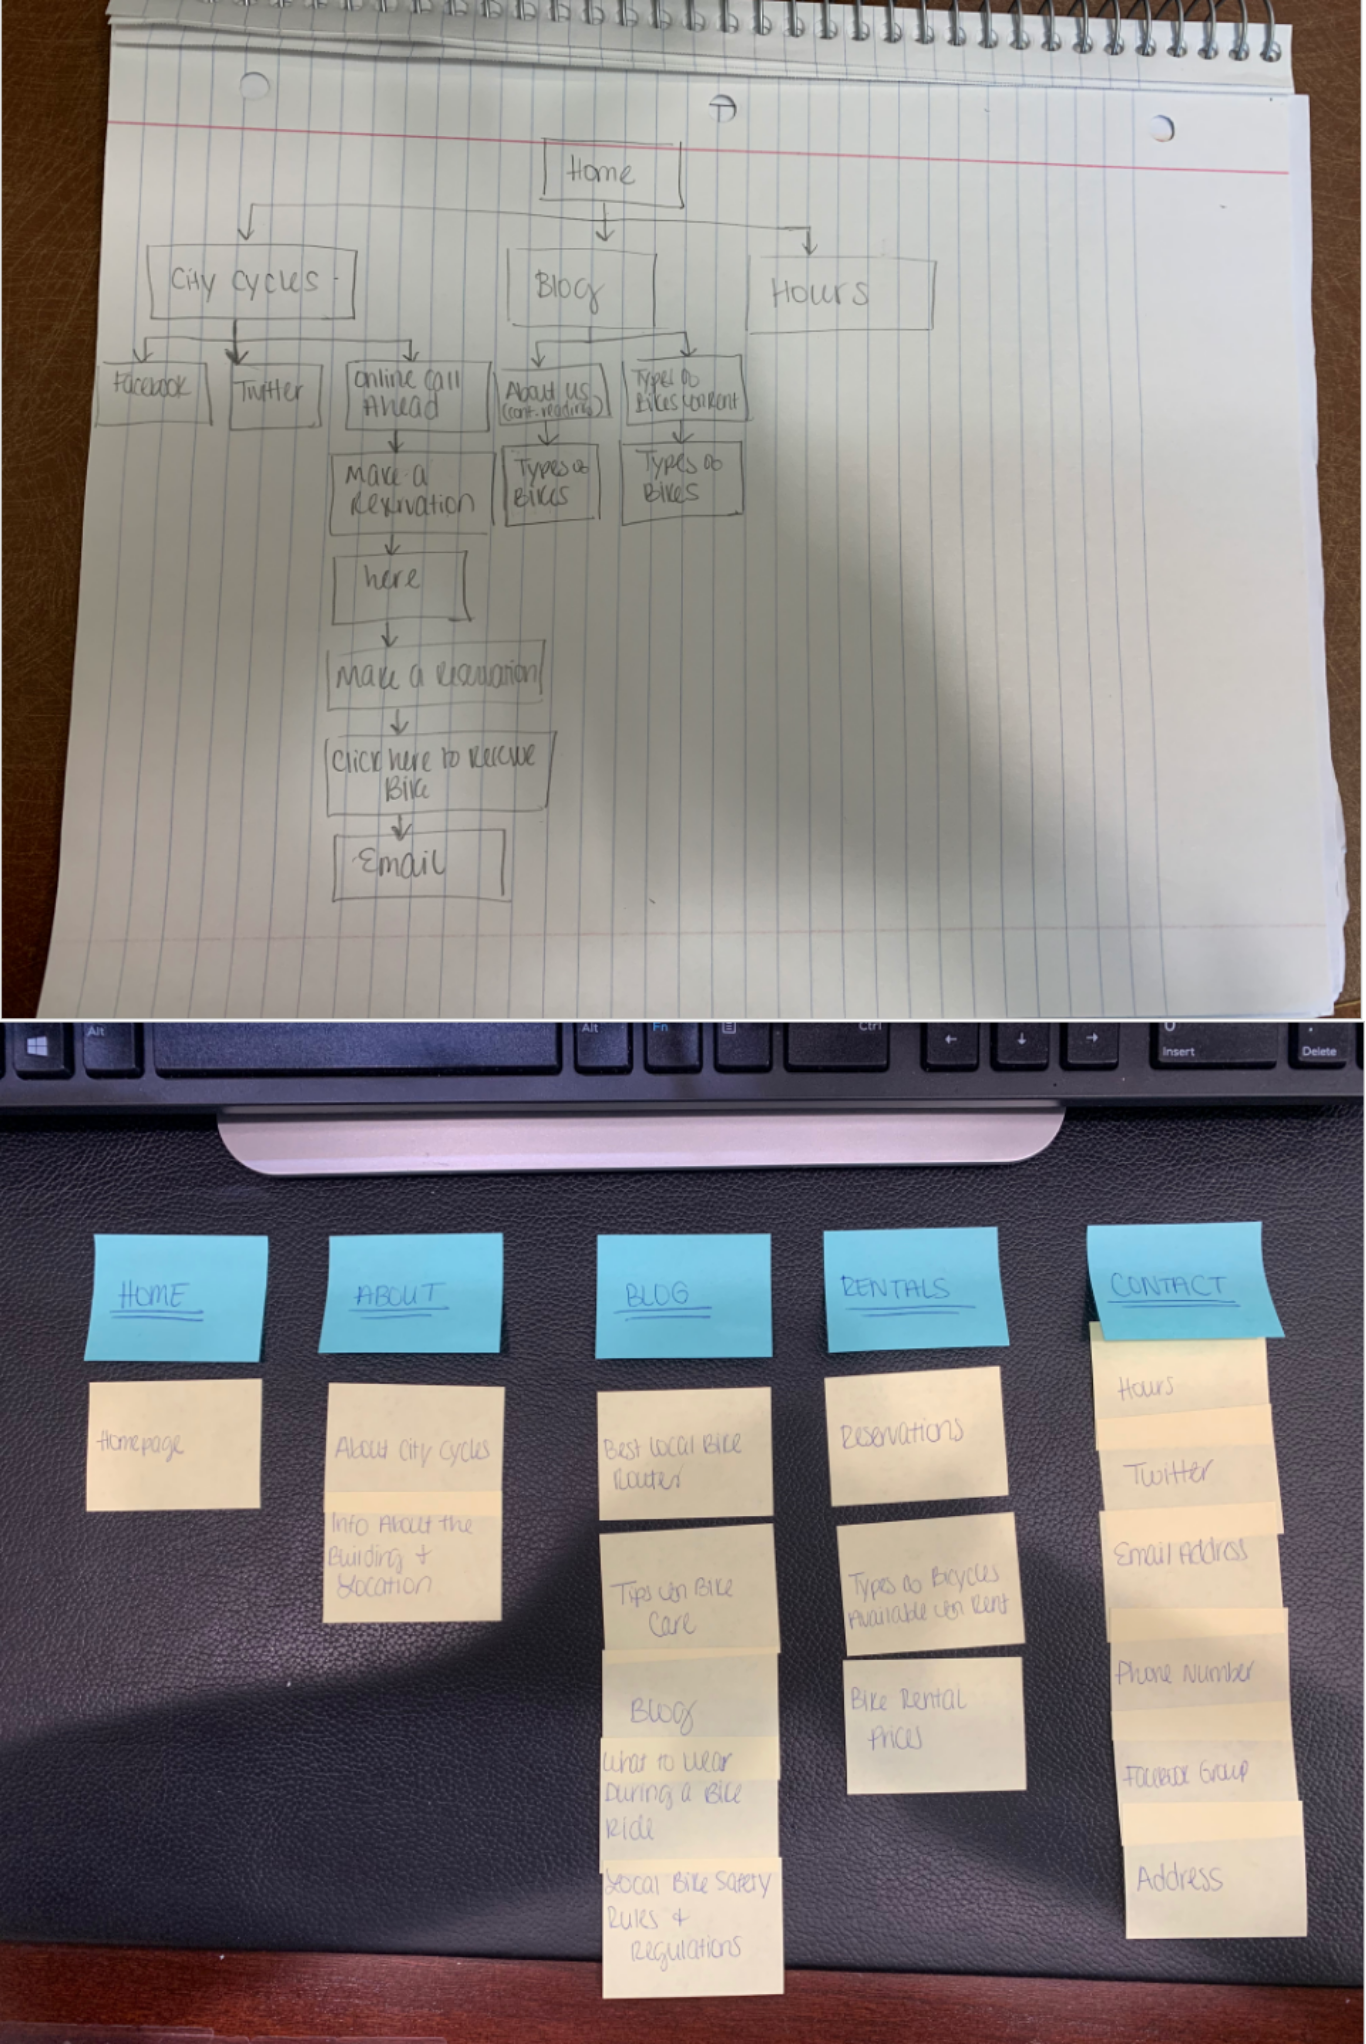 Home
City Cycles
Blog
Hours
Facebook
Twitter
Online Call
Ahead
About us
(cont. reading)
Types of
Bikes
Make a
Reservation
Types of
Bikes
Types of
Bikes
here
Make a Reservation
Click here to Reserve
Bike
Email
Alt
Alt
Fn
Ctrl
Insert
Delete
HOME
ABOUT
BLOG
RENTALS
CONTACT
Homepage
About City Cycles
Info About the
Building +
Location
Best Local Bike
Routes
Tips on Bike
Care
Blog
What to Wear
During a Bike
Ride
Local Bike Safety
Rules +
Regulations
Reservations
Types of Bicycles
Available Rent
Bike Rental
Prices
Hours
Twitter
Email Address
Phone Number
Facebook Group
Address